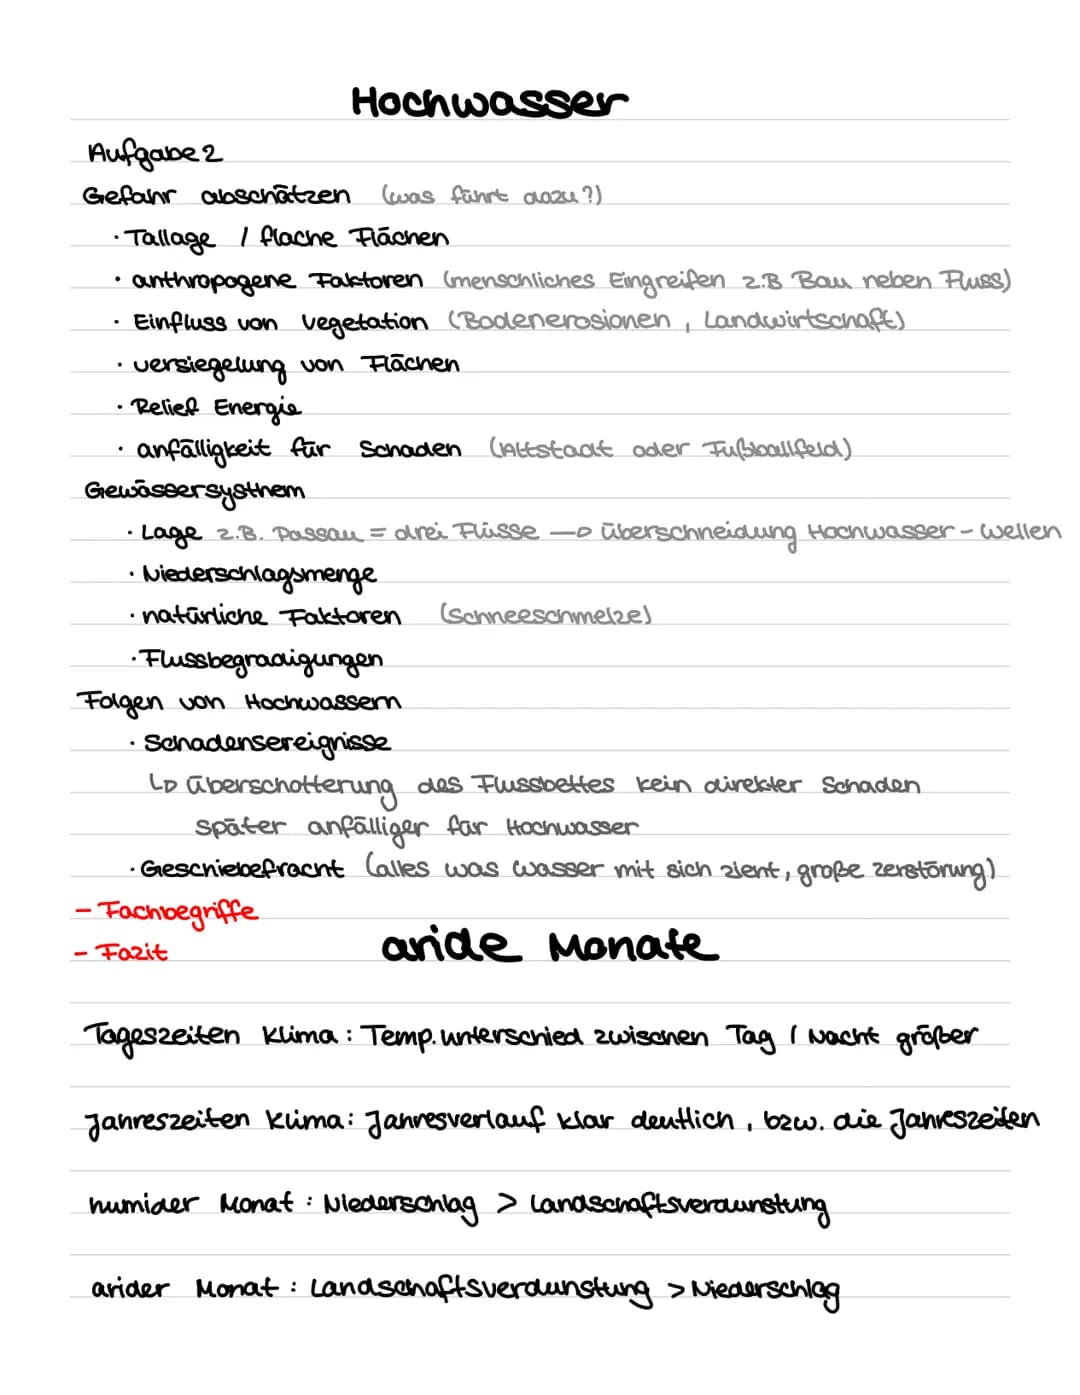 Hochwasser
Aufgabe 2
Gefahr abschätzen (was führt dazu?)
· Tallage / flache Flächen
· anthropogene Faktoren (menschliches Eingreifen z.B Bau neben Fluss)
· Einfluss von Vegetation (Bodenerosionen, Landwirtschaft)
· versiegelung von Flächen
· Relief Energie
· anfälligkeit für Schaden (Altstadt oder Fußballfeld)
Gewässersysthem
· Lage z.B. Passau = drei Flüsse → überschneidung Hochwasser - Wellen
· Niederschlagsmenge
· natürliche Faktoren (Schneeschmelze)
· Flussbegradigungen
Folgen von Hochwassern
· Schadensereignisse
↳ überschotterung des Flussbettes kein direkter Schaden
später anfälliger für Hochwasser
· Geschiebefracht (alles was Wasser mit sich zieht, große zerstörung)
- Fachbegriffe
- Fazit
aride Monate
Tageszeiten Klima: Temp.unterschied zwischen Tag / Nacht größer
Jahreszeiten Klima: Jahresverlauf klar deutlich, bzw. die Jahreszeiten
humider Monat: Niederschlag > Landschaftsverdunstung
arider Monat: Landschaftsverdunstung > Niederschlag